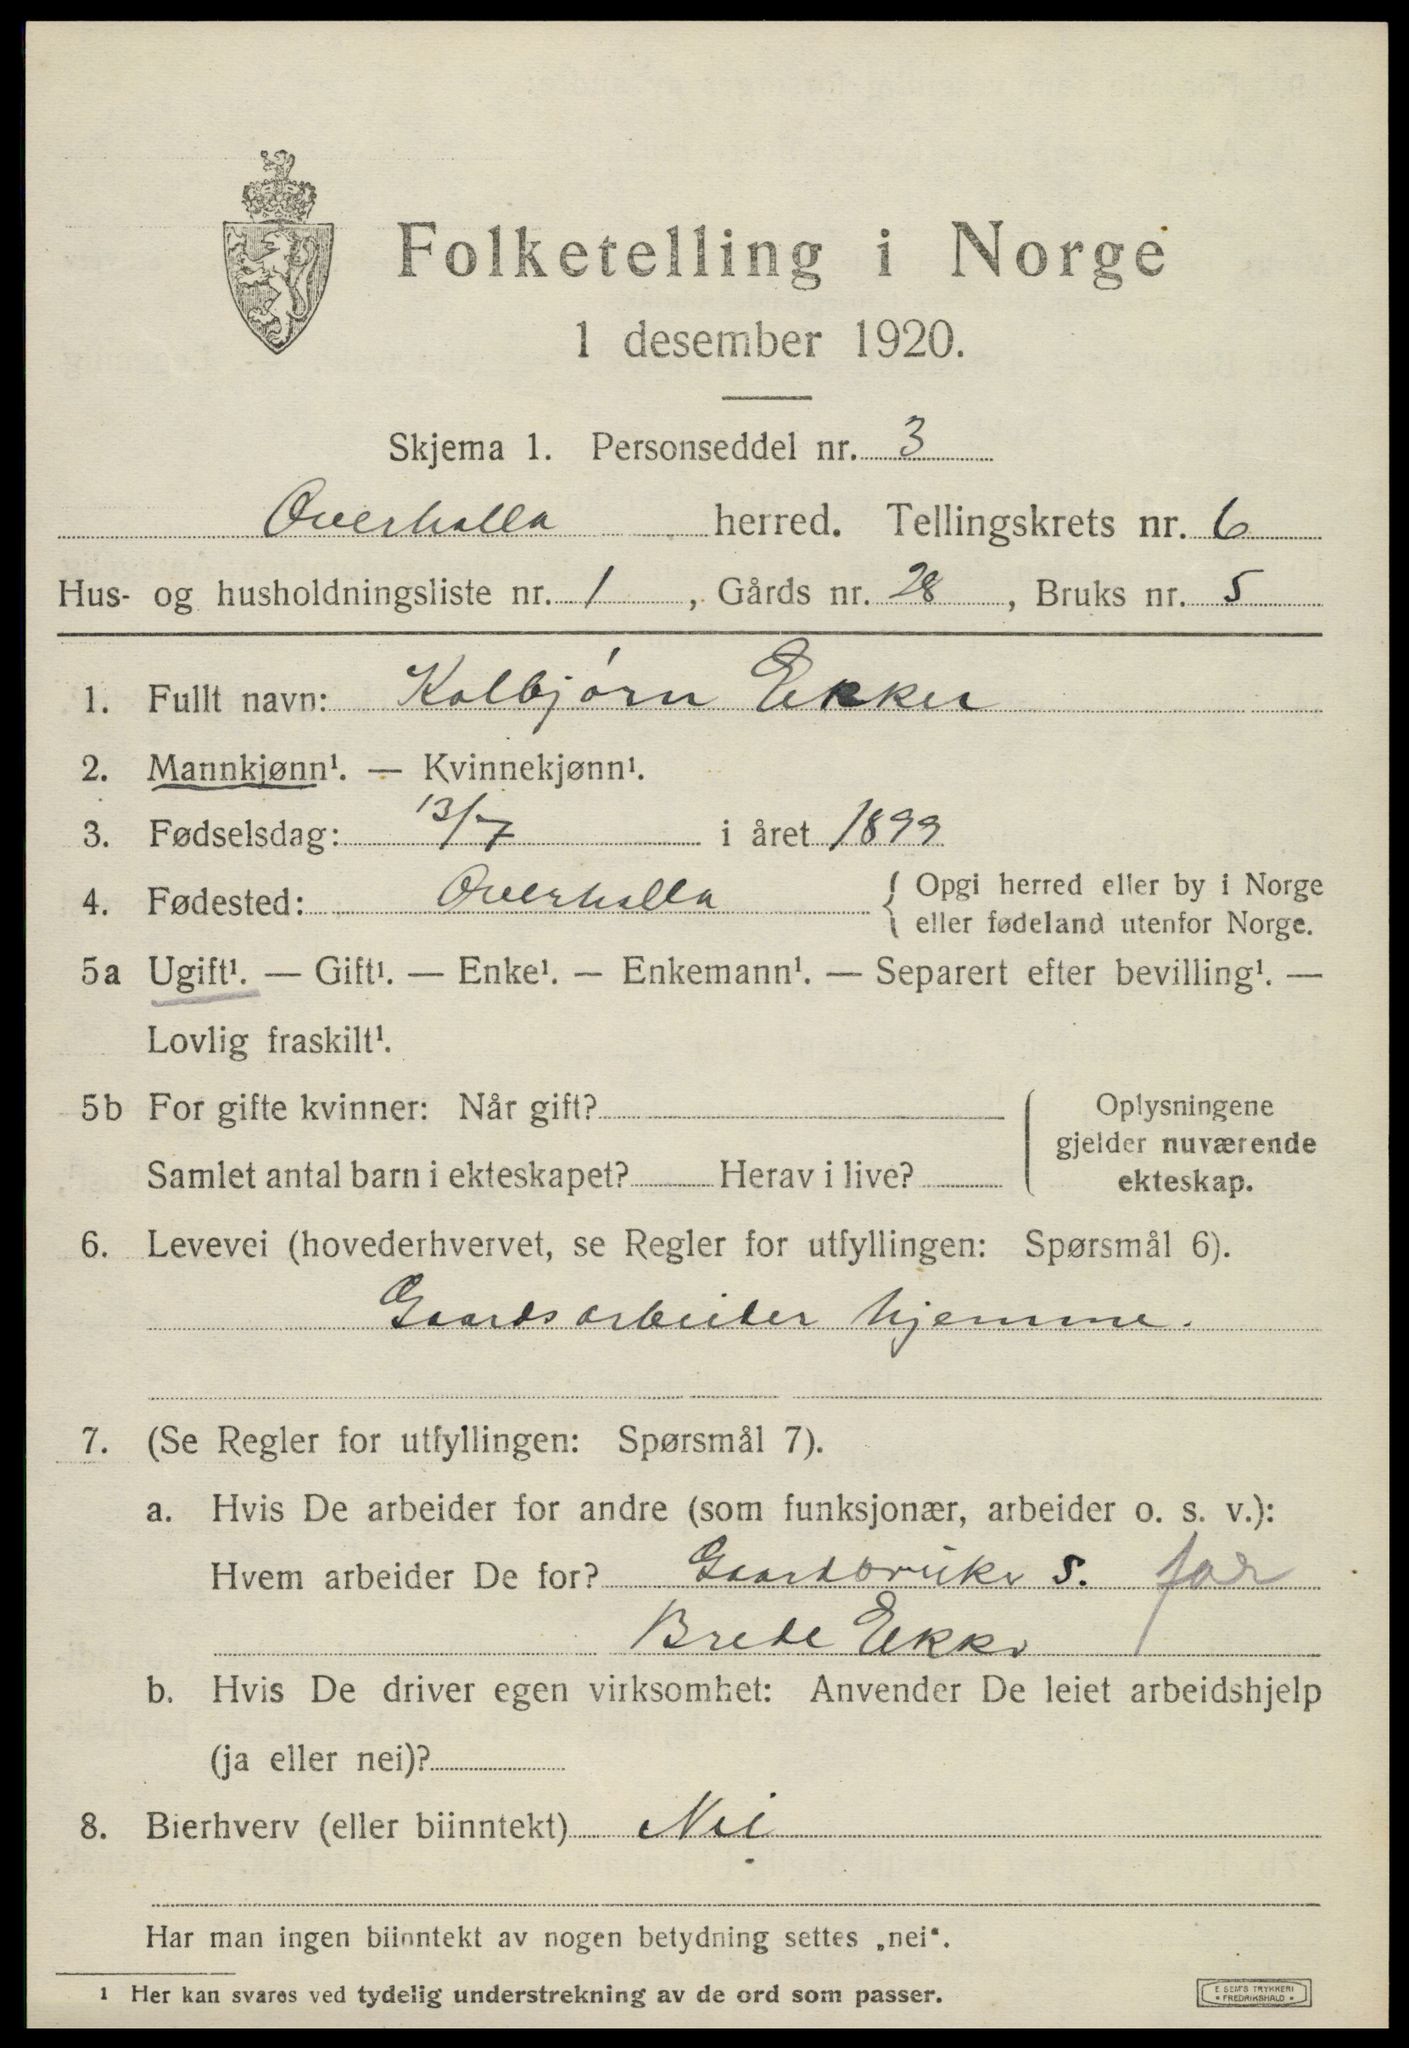 Folketelling i Norge
1 desember 1920.
Skjema 1. Personseddel nr. 3
Overhalla herred. Tellingskrets nr. 6
Hus- og husholdningsliste nr. 1, Gårds nr. 28, Bruks nr. 5
1. Fullt navn: Kolbjørn Ekker
2. Mannkjønn¹. — Kvinnekjønn¹.
3. Fødselsdag: 13/7 i året 1899
4. Fødested: Overhalla { Opgi herred eller by i Norge
eller fødeland utenfor Norge.
5a Ugift¹. — Gift¹. — Enke¹. — Enkemann¹. — Separert efter bevilling¹. —
Lovlig fraskilt¹.
5b For gifte kvinner: Når gift?
Samlet antal barn i ekteskapet? Herav i live?
Oplysningene
gjelder nuværende
ekteskap.
6. Levevei (hovederhvervet, se Regler for utfyllingen: Spørsmål 6).
Gaardsarbeider hjemme.
7. (Se Regler for utfyllingen: Spørsmål 7).
a. Hvis De arbeider for andre (som funksjonær, arbeider o. s. v.):
Hvem arbeider De for? Gaardbruker S. far
Brede Ekker
b. Hvis De driver egen virksomhet: Anvender De leiet arbeidshjelp
(ja eller nei)?
8. Bierhverv (eller biinntekt) Nei
Har man ingen biinntekt av nogen betydning settes „nei“.
¹ Her kan svares ved tydelig understrekning av de ord som passer.
E SEM'S TRYKKERI
• FREDRIKSHALD •